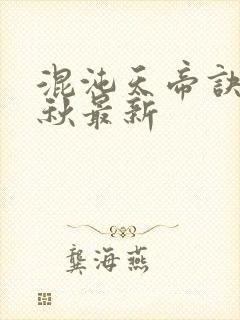 混沌天帝诀
秋最新
龔海燕